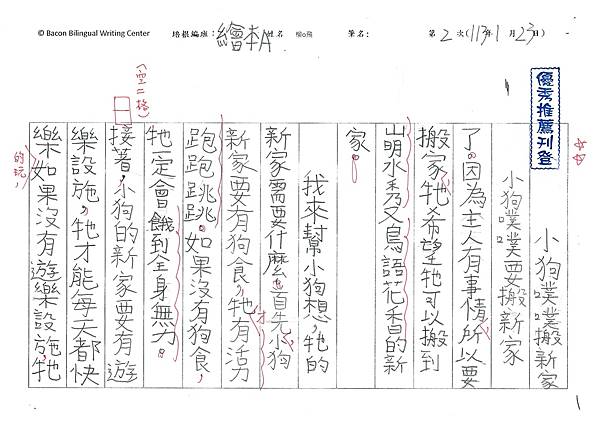 © Bacon Bilingual Writing Center 培根編班：繪本A 姓名 筆名： 第2次(113年1月23日)
優秀推薦刊登
小狗噗噗搬新家
小狗噗噗要搬新家
了。因為主人有事情，所以要
搬家，牠希望牠可以搬到
山明水秀又鳥語花香的新
家。
我來幫小狗想，牠的
新家需要什麼？首先，小狗
新家要有狗食，牠才有活力
跑跑跳跳。如果沒有狗食，
牠一定會餓到全身無力。
(空二格)
接著，小狗的新家要有遊
樂設施，牠才能每天都快
樂的玩，如果沒有遊樂設施，牠
1